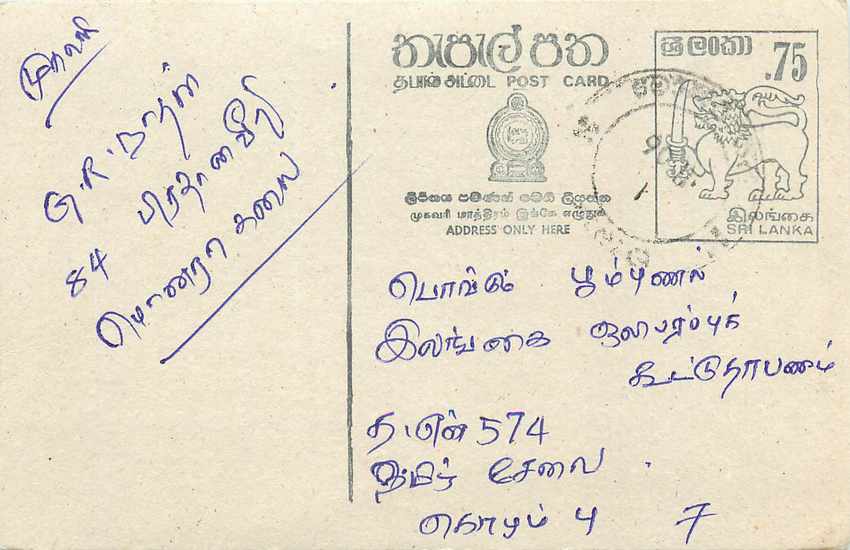 முகவரி
G.R. நாதன்
84 பிரதான வீதி
மொணராகலை
තැපැල් පත
தபால் அட்டை POST CARD
ලිපිනය පමණක් මෙහි ලියන්න
முகவரி மாத்திரம் இங்கே எழுதுக
ADDRESS ONLY HERE
ශ්‍රී ලංකා
.75
இலங்கை
SRI LANKA
பொங்கும் பூம்புனல்
இலங்கை ஒலிபரப்புக்
கூட்டுதாபனம்
த.பெ 574
தமிழ் சேவை
கொழும்பு 7